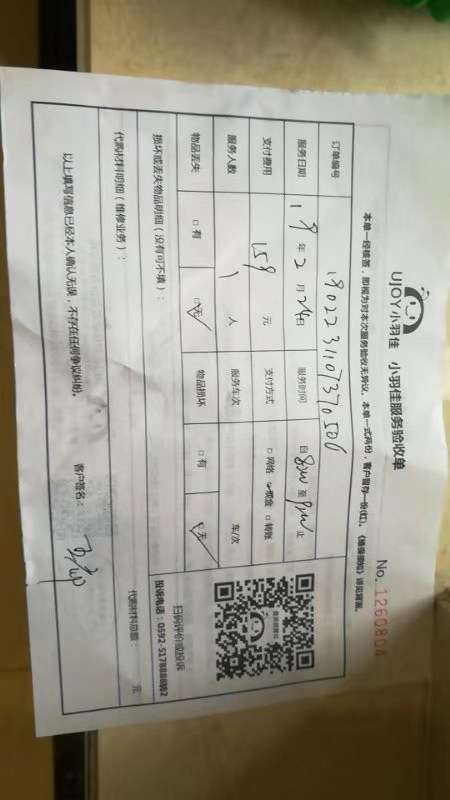 UJOY小羽佳 小羽佳服务验收单
No. 1260804
本单一经接答，即视为对本次服务验收无异议。本单一式两份，客户留存一份(红)。《维保须知》详见背面。
订单编号 1902231107370506
服务日期 19 年 2 月 24日 服务时间 自 8:00 至 9:00 止
支付费用 159 元 支付方式 □网络 □现金 □转账
服务人数 1 人 服务车次 车/次
物品丢失 □有 □无 物品损坏 □有 □无
损坏或丢失物品明细（没有可不填）：
扫码评价或投诉
投诉电话：0592-5178888转2
代购材料明细（维修业务）：
代购材料总额： 元
以上填写信息已经本人确认无误，不存在任何争议纠纷。 客户签名：